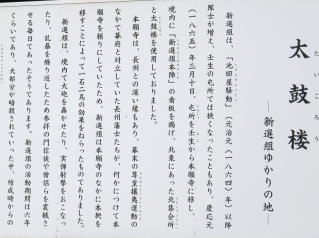 太鼓楼
たいころう
―新選組ゆかりの地―
新選組は、「池田屋騒動」（元治元〈一八六四〉年）以降
隊士が増え、壬生の屯所では狭くなったこともあり、慶応元
（一八六五）年三月十日、屯所を壬生から本願寺に移し、
境内に「新選組本陣」の看板を掲げ、北東にあった北集会所
と太鼓楼を使用しておりました。
本願寺は、長州との深い縁もあり、幕末の尊皇攘夷運動の
なかで幕府と対立していた長州藩士たちが、何かにつけて本
願寺を頼りにしていたため、新選組は本願寺のなかに本拠を
移すことによって一石二鳥の効果をねらったものでありました。
新選組は、境内で大砲を轟かせたり、実弾射撃をおこなっ
たり、乱暴を繰り返したため参拝の門信徒や僧侶らを震撼さ
せる毎日であったそうであります。新選組の活動期間は六年
ぐらいであり、大部分が暗殺されていった中、結成時からの